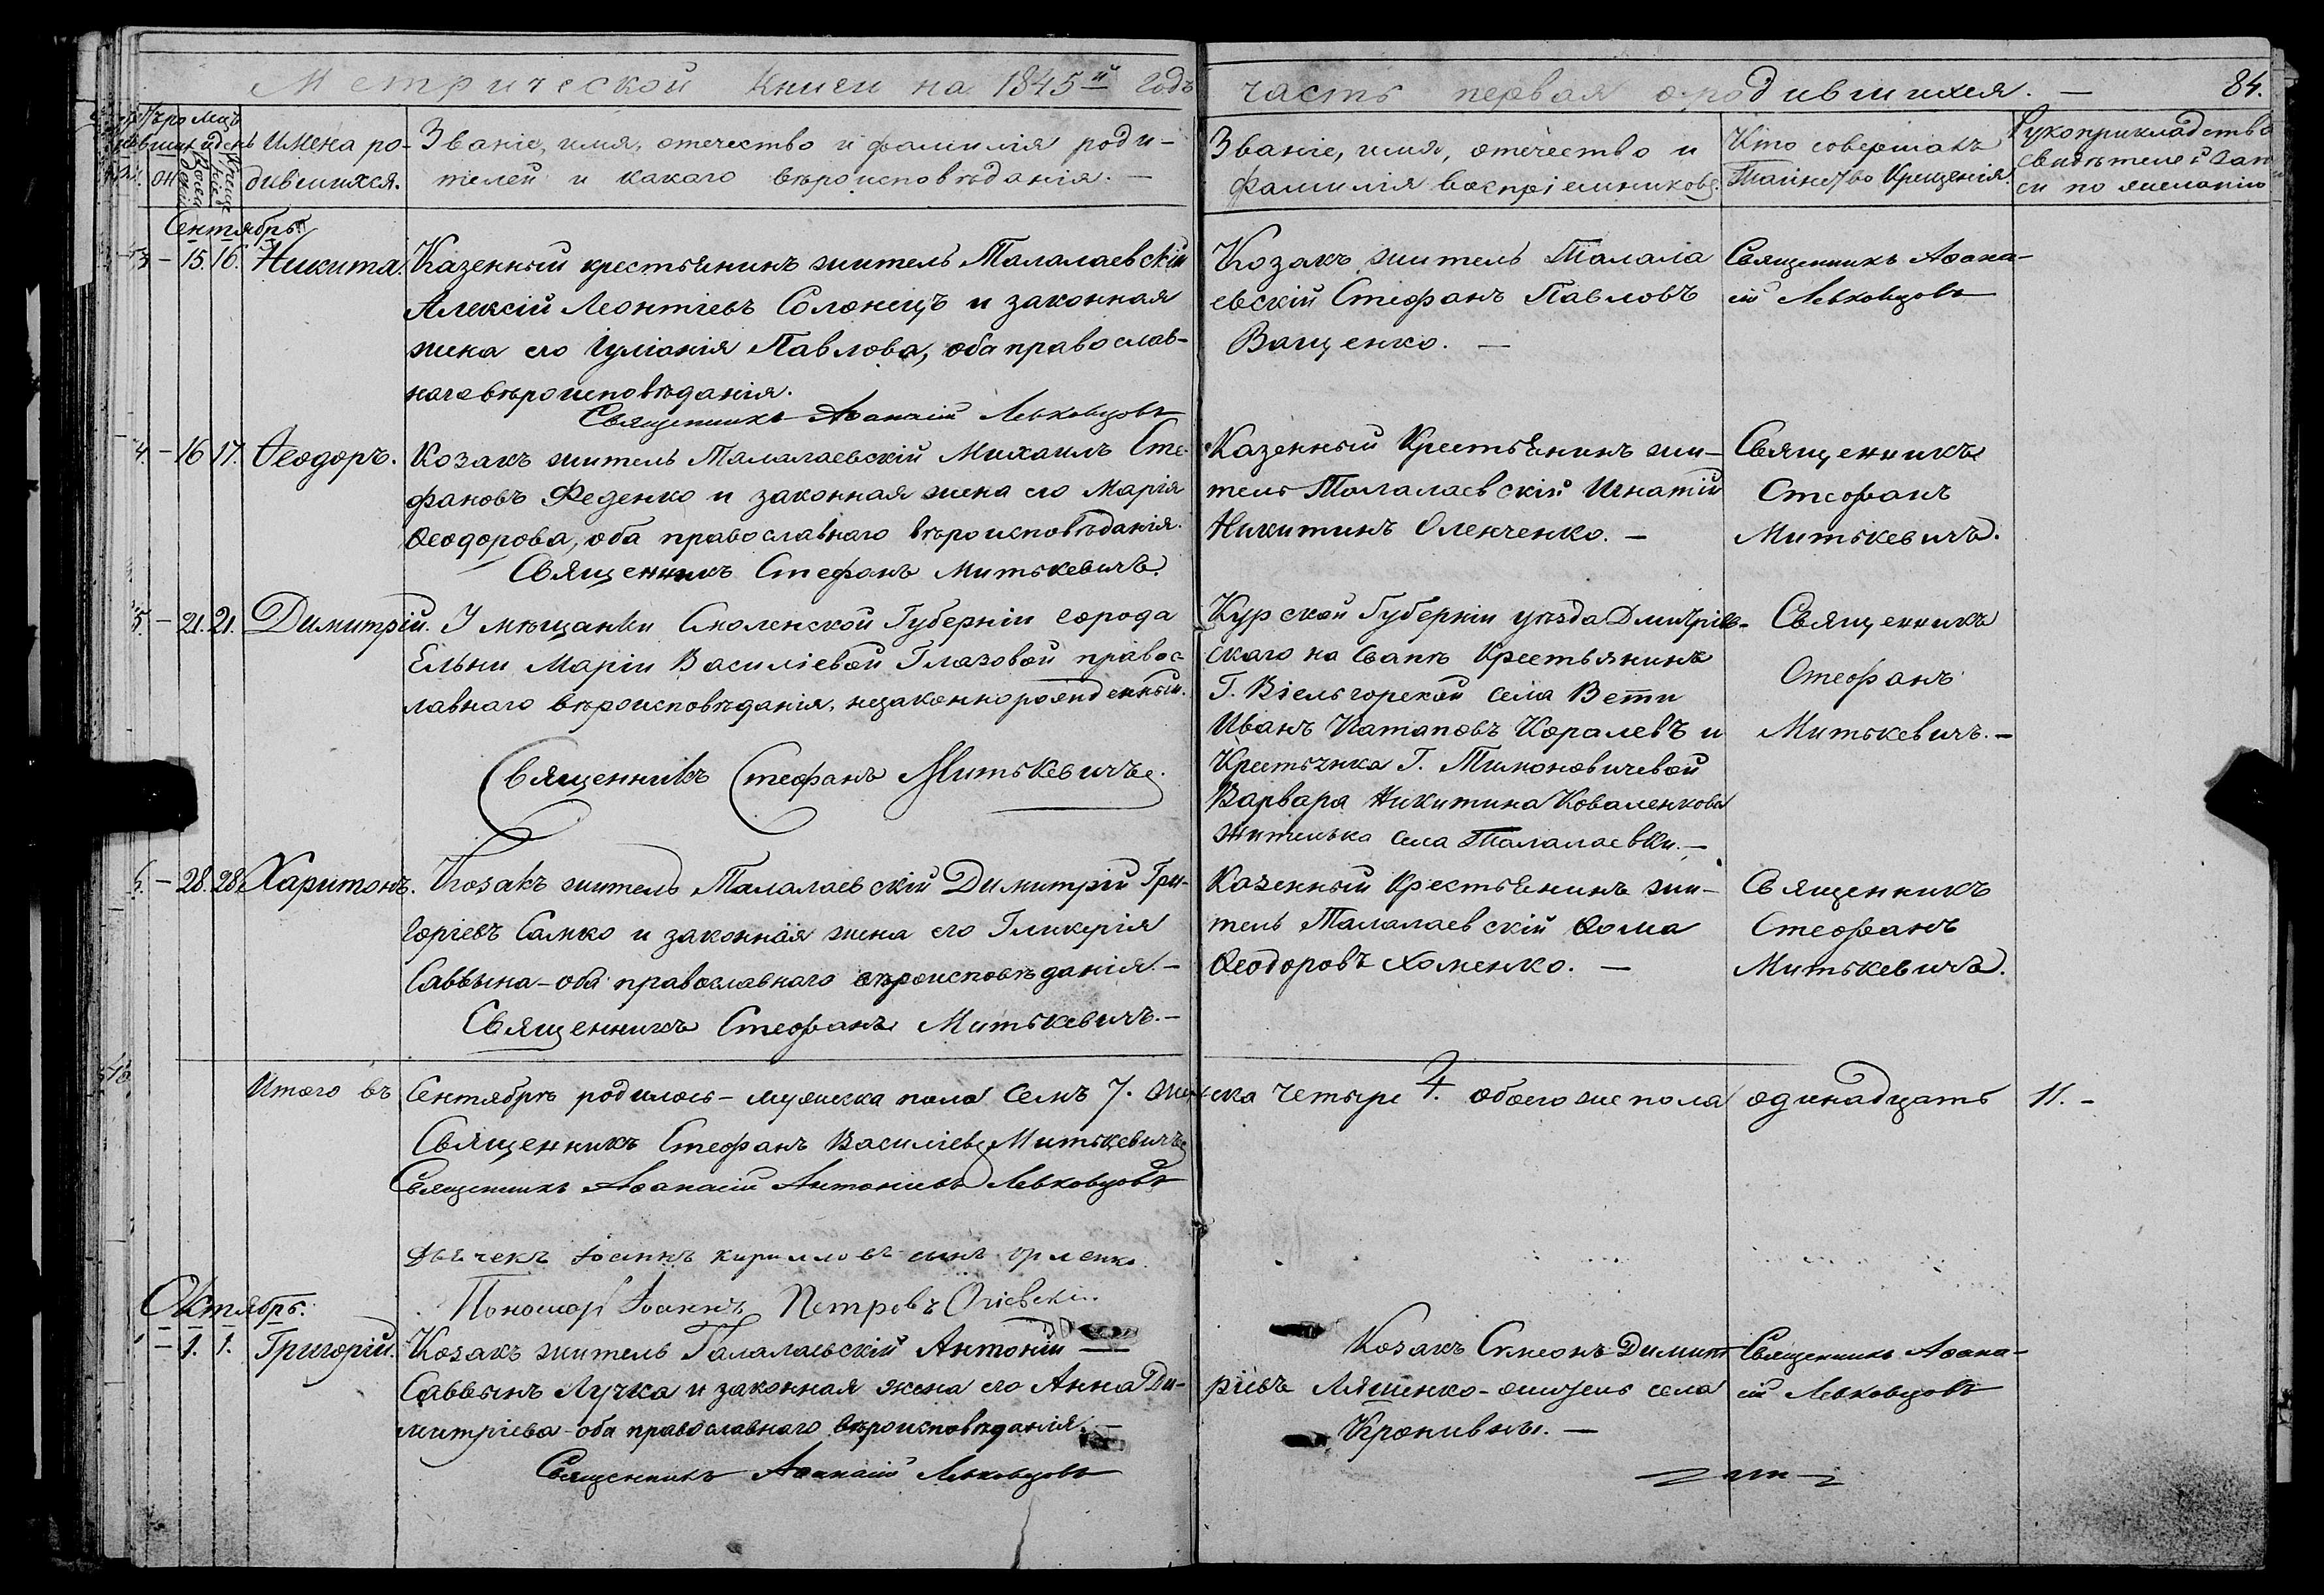 Метрической Книги на 1845й годъ часть первая о родившихся. — 84.
Имена ро-
дившихся.
Званіе, имя, отечество и фамилія роди-
телей и какаго вѣроисповѣданія. —
Званіе, имя, отечество и
фамилія воспріемниковъ.
Кто совершалъ
Таинство Крещенія.
Рукоприкладство
свидѣтелей зап
си по желанію
Сентябрь.
3 – 15. 16. Никита.
Казенный крестьѣнинъ житель Талалаевскій
Алексій Леонтіевъ Солонецъ и законная
жена его Іуліанія Павлова, оба православ-
наго вѣроисповѣданія.
Священникъ Аѳанасій Левковцовъ
Козакъ житель Талала
евскій Стефанъ Павловъ
Ващенко. —
Священникъ Аѳана-
сій Левковцовъ
4. – 16 17. Ѳеодоръ.
Козакъ житель Талалаевскій Михаилъ Сте-
фановъ Феденко и законная жена его Марія
Ѳеодорова, оба православнаго вѣроисповѣданія.
Священникъ Стефанъ Митькевичъ.
Казенный Крестьѣнинъ жи-
тель Талалаевскій Игнатій
Никитинъ Оленченко. —
Священникъ
Стефанъ
Митькевичъ.
5. – 21. 21. Димитрій.
У мѣщанки Смоленской Губерніи города
Ельни Маріи Василіевой Глазовой правос-
лавнаго вѣроисповѣданія, незаконнорожденный.
Священникъ Стефанъ Митькевичъ.
Курской Губерніи уѣзда Дмитріев-
скаго на Свапѣ Крестьянинъ
Г. Віельгорской села Вети
Иванъ Патаповъ Королевъ и
Крестьянка Г. Тимоновичевой
Варвара Никитина Коваленкова
жителька села Талалаевки. —
Священникъ
Стефанъ
Митькевичъ. —
6. – 28. 28. Харитонъ.
Козакъ житель Талалаевскій Димитрій Гри-
горіевъ Самко и законная жена его Гликерія
Саввына – оба православнаго вѣроисповѣданія. —
Священникъ Стефанъ Митькевичъ. —
Казенный Крестьѣнинъ жи-
тель Талалаевскій Ѳома
Ѳеодоровъ Хоменко. —
Священникъ
Стефанъ
Митькевичъ.
Итого въ Сентябрѣ родилось – мужеска пола Семъ 7. женска четыре 4. обоего же пола одинадцать 11. –
Священникъ Стефанъ Василіевъ Митькевичъ
Священникъ Аѳанасій Антоніевъ Левковцовъ
Дьячекъ Іоаннъ Кирилловъ сынъ
Пономарь Іоаннъ Петровъ Огіевскій
Октябрь.
1 – 1. 1. Григорій.
Козакъ житель Талалаевскій Антоній —
Саввынъ Лучка и законная жена его Анна Ди-
митріева – оба православнаго вѣроисповѣданія. —
Священникъ Аѳанасій Левковцовъ
Козакъ Симеонъ Димит
ріевъ Ляшенко – житель села
Кропивны. —
Священникъ Аѳана-
сій Левковцовъ